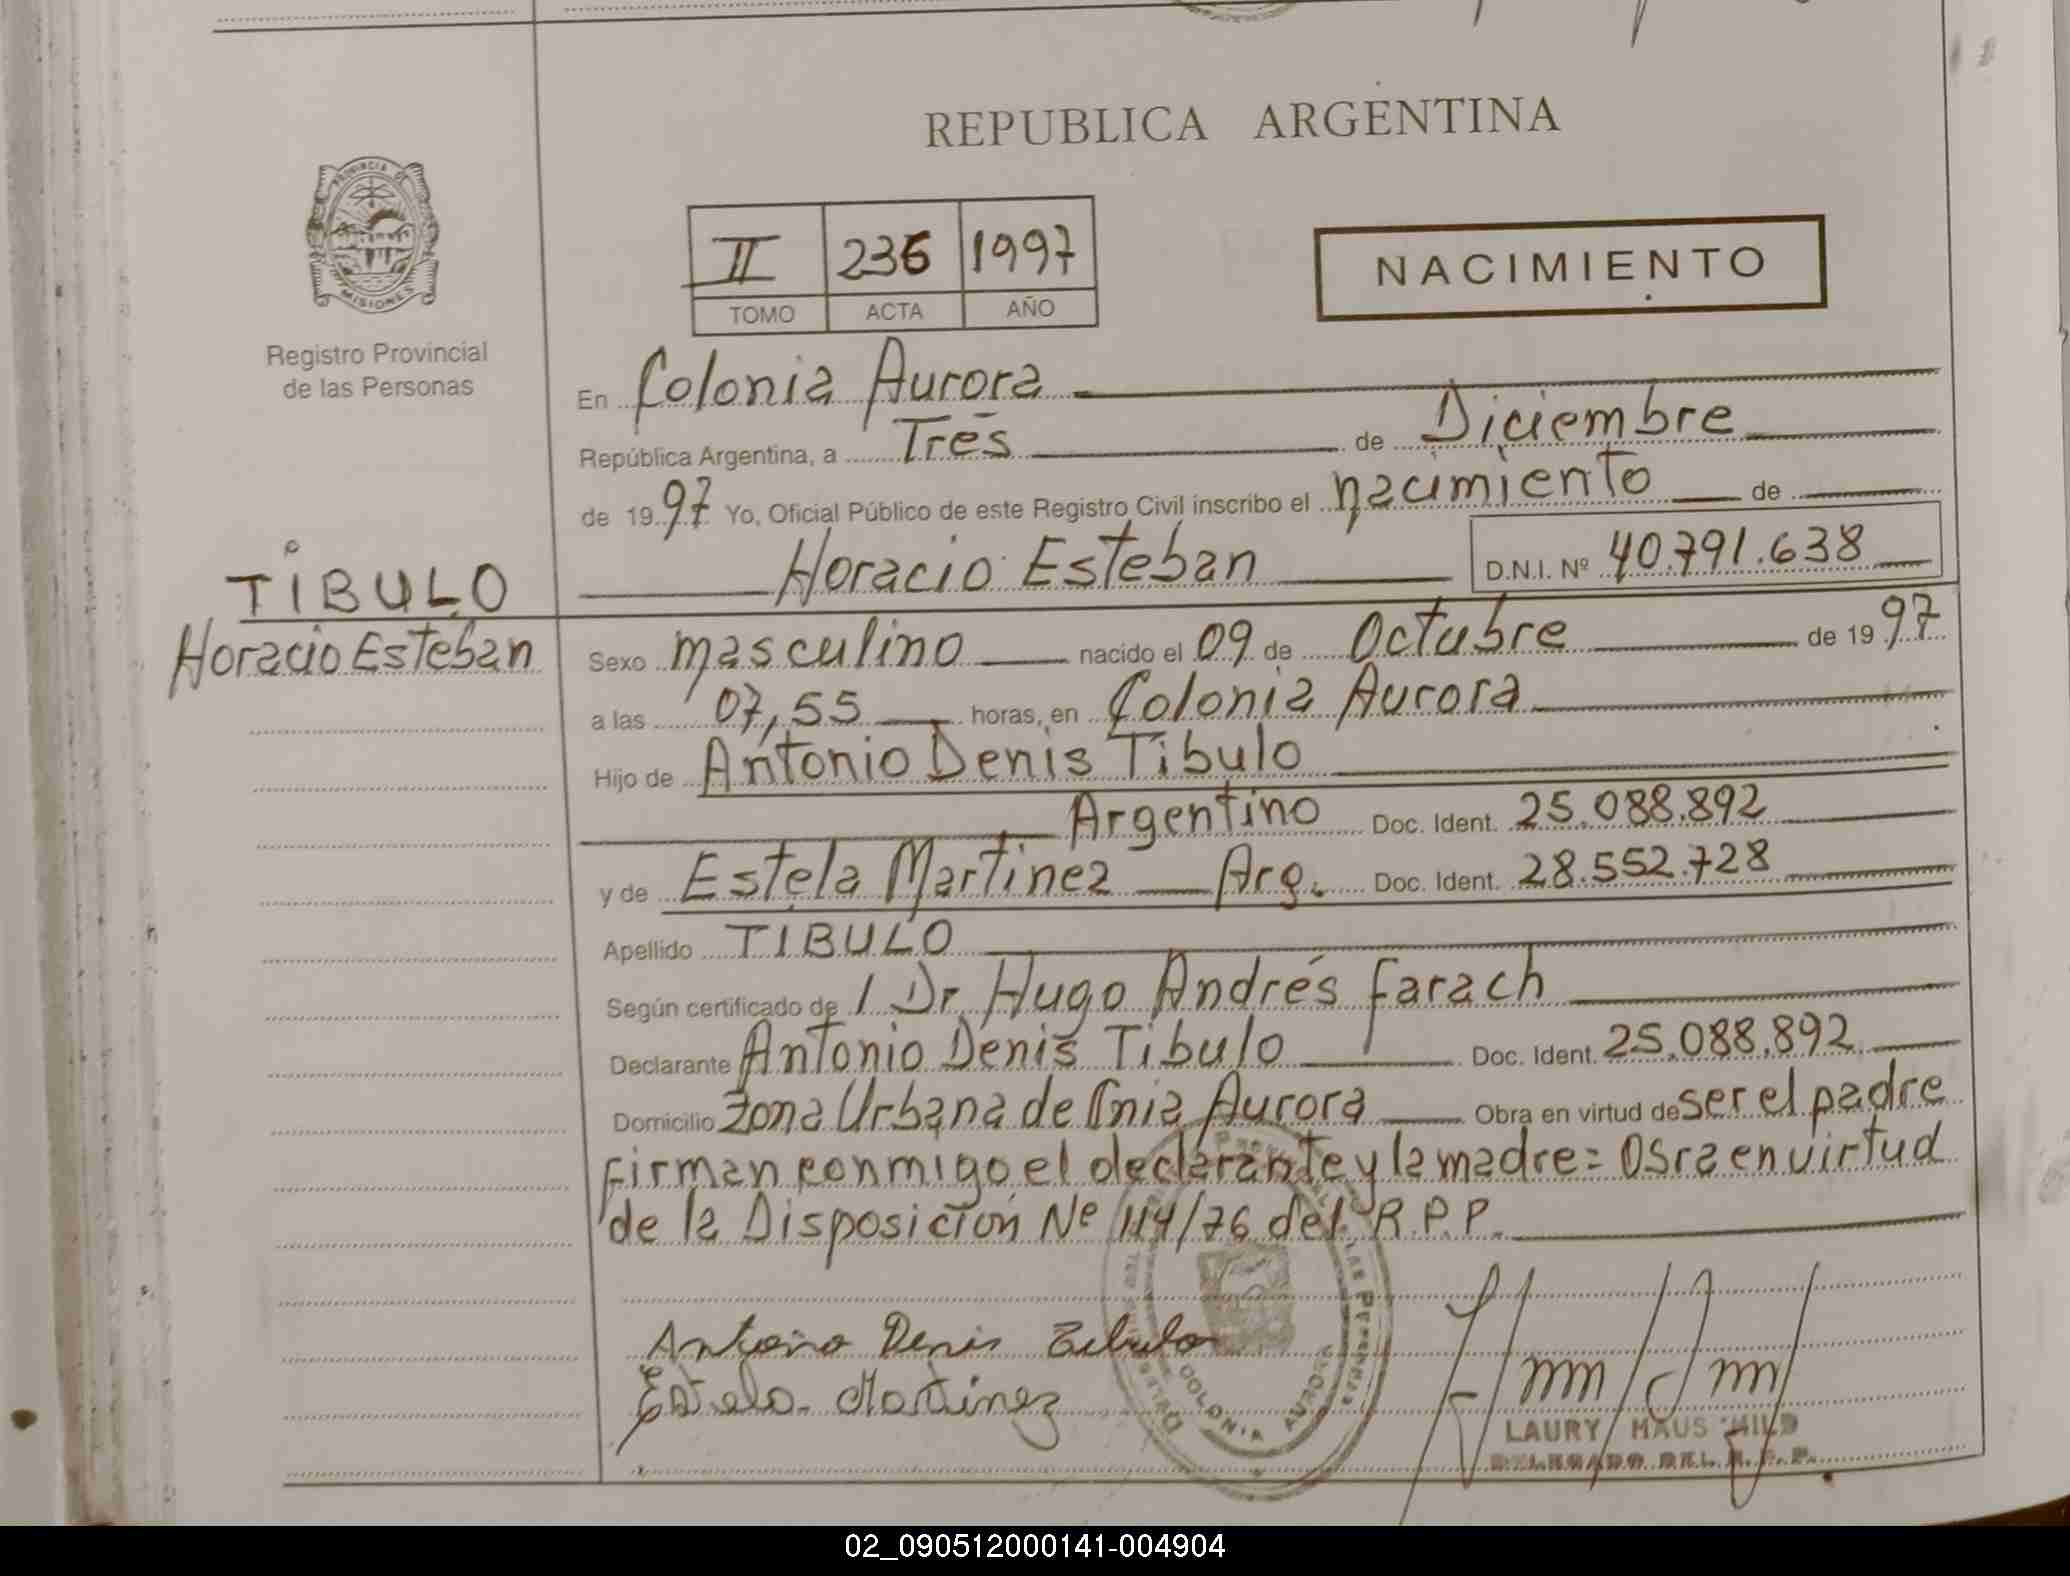 REPUBLICA ARGENTINA
PROVINCIA DE
MISIONES
Registro Provincial
de las Personas
II 236 1997
TOMO ACTA AÑO
NACIMIENTO
En Colonia Aurora
República Argentina, a Tres de Diciembre
de 1997 Yo, Oficial Público de este Registro Civil inscribo el nacimiento de
Horacio Esteban D.N.I. Nº 40.791.638
TIBULO
Horacio Esteban
Sexo masculino nacido el 09 de Octubre de 1997
a las 07,55 horas, en Colonia Aurora
Hijo de Antonio Denis Tibulo
Argentino Doc. Ident. 25.088.892
y de Estela Martinez Arg. Doc. Ident. 28.552.728
Apellido TIBULO
Según certificado de / Dr. Hugo Andrés Farach
Declarante Antonio Denis Tibulo Doc. Ident. 25.088.892
Domicilio Zona Urbana de Cnia Aurora Obra en virtud de ser el padre
firman conmigo el declarante y la madre = Obra en virtud
de la Disposición Nº 114/76 del R.P.P.
Antonio Denis Tibulo
Estela Martinez
COLONIA AURORA
LAURY HAUS HILD
DELEGADO DEL R.P.P.
02_090512000141-004904